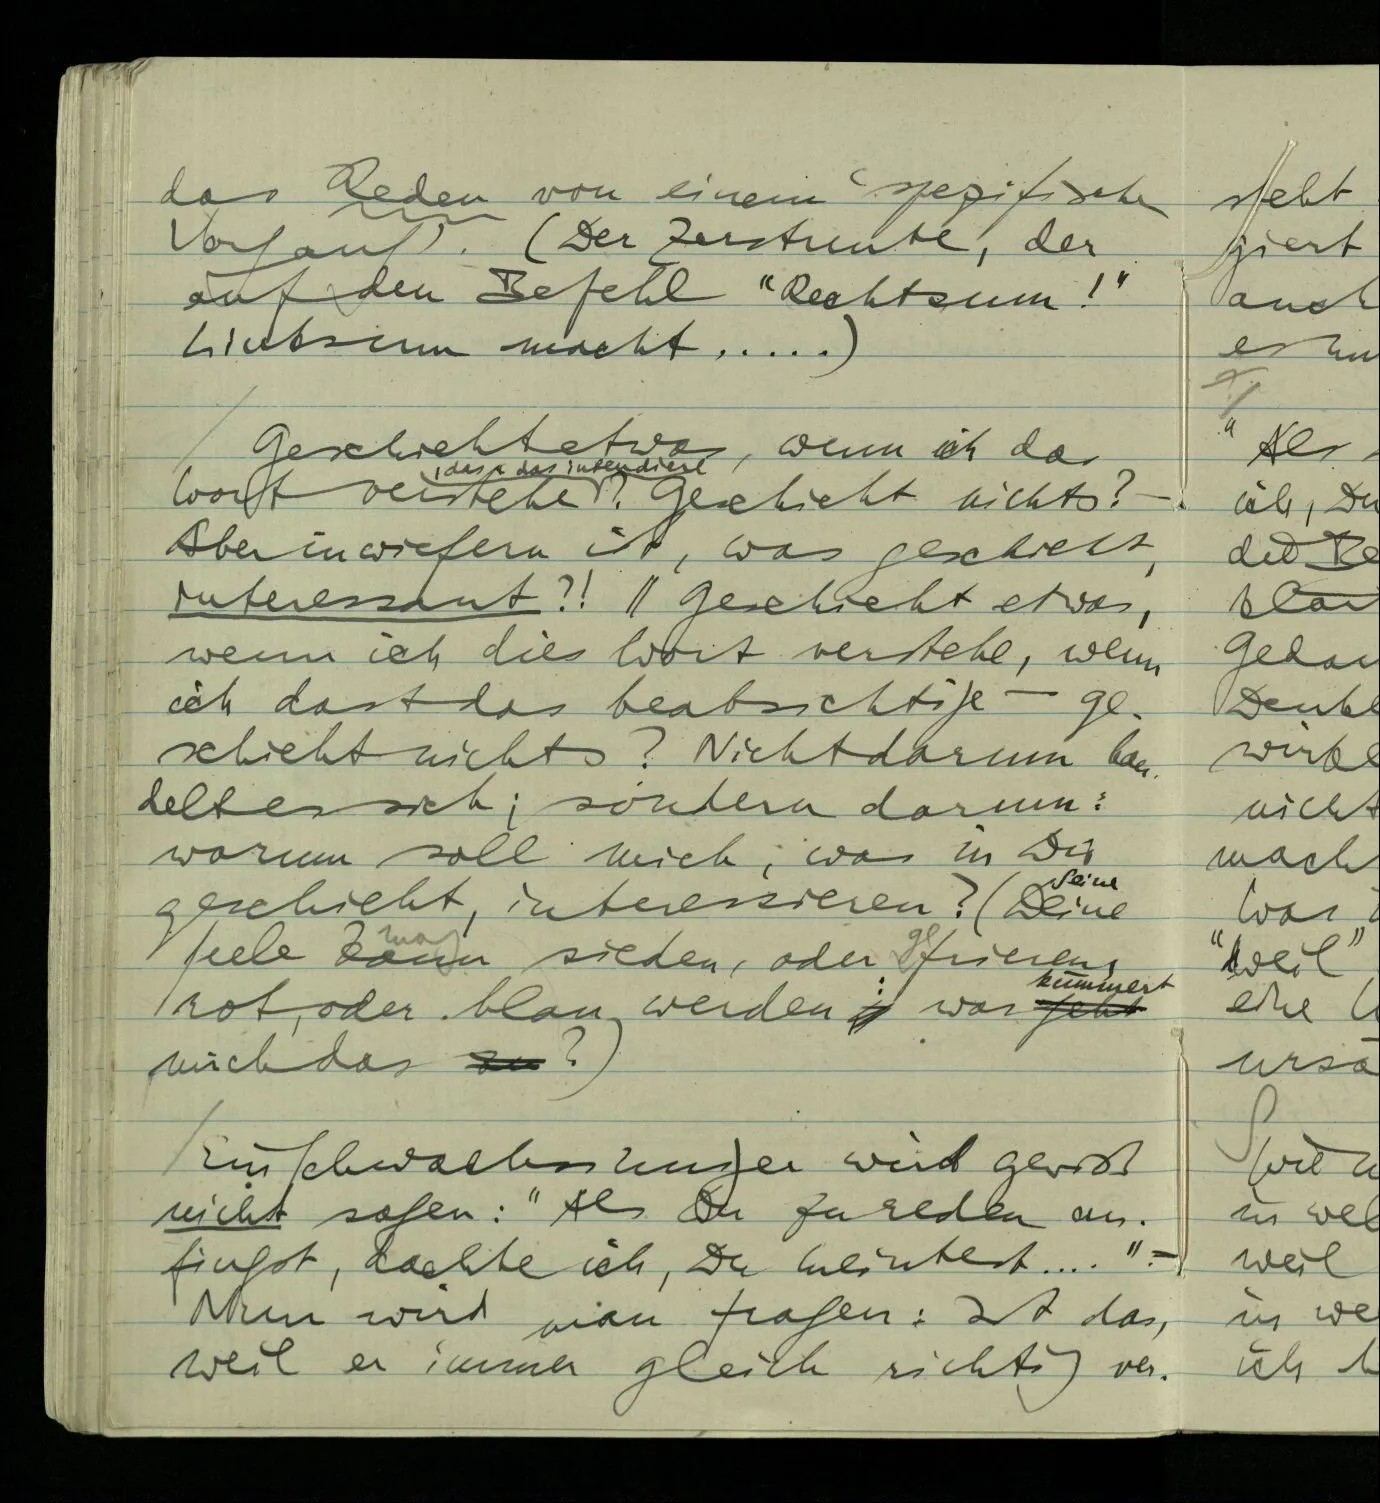 das Reden von einem 'spezifische
Vorgang'. (Der Zerstreute, der
auf den Befehl "Rechtsum!"
Linksum macht.....)
/ Geschieht etwas, wenn ich das
, das & das intendiere
Wort verstehe? Geschieht nichts? –
Aber inwiefern ist, was geschieht,
interessant?! // Geschieht etwas,
wenn ich dies Wort verstehe, wenn
ich das & das beabsichtige – ge-
schieht nichts? Nicht darum han-
delt es sich; sondern darum:
warum soll mich, was in Dir
geschieht, interessieren? (Deine
Seine
Seele kann sieden, oder frieren,
mag
ge
rot, oder blau werden: was geht
kümmert
mich das an?)
/ Ein Schwachsinniger wird gewiß
nicht sagen: "Als Du zu reden an-
fingst, dachte ich, Du meintest...." –
Nun wird man fragen: Ist das,
weil er immer gleich richtig ver-
steht
giert
auch
"Als
ich, Du
der Be
Gedan
Denke
wirkl
nicht
mach
War
"weil"
eine U
ursä
Wie
in wel
weil
in we
ich h